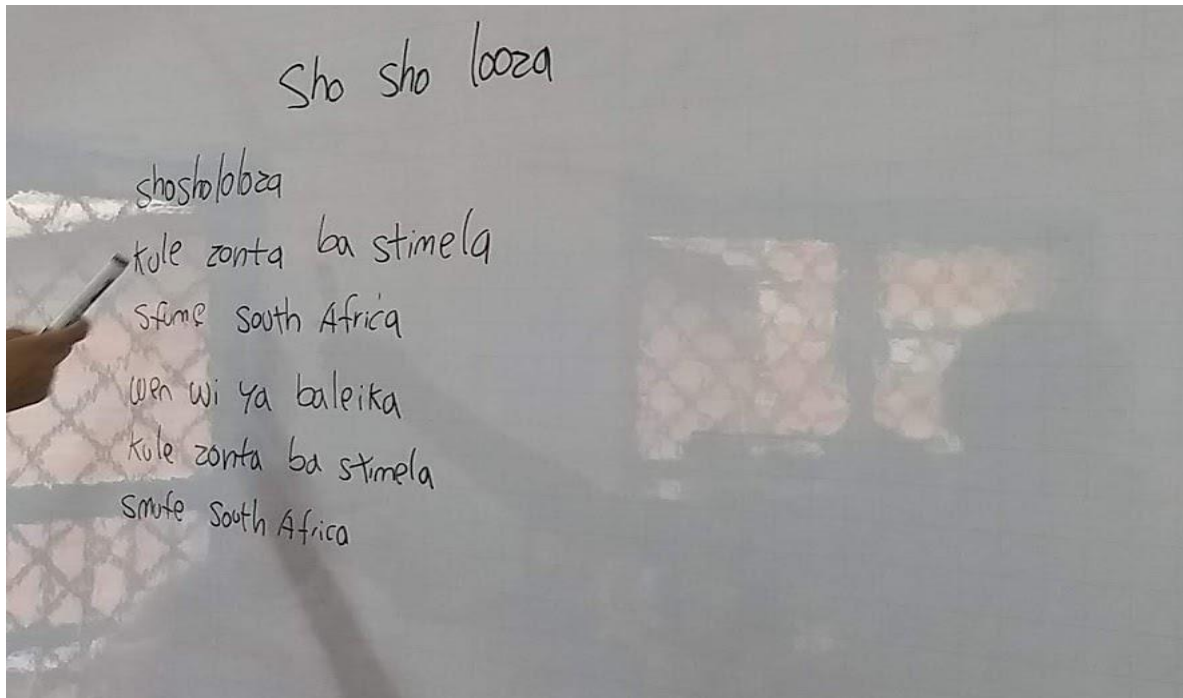 Sho sho looza
shosholobza
kule zonta ba stimela
sfume South Africa
wen wi ya baleika
kule zonta ba stimela
smufe South Africa